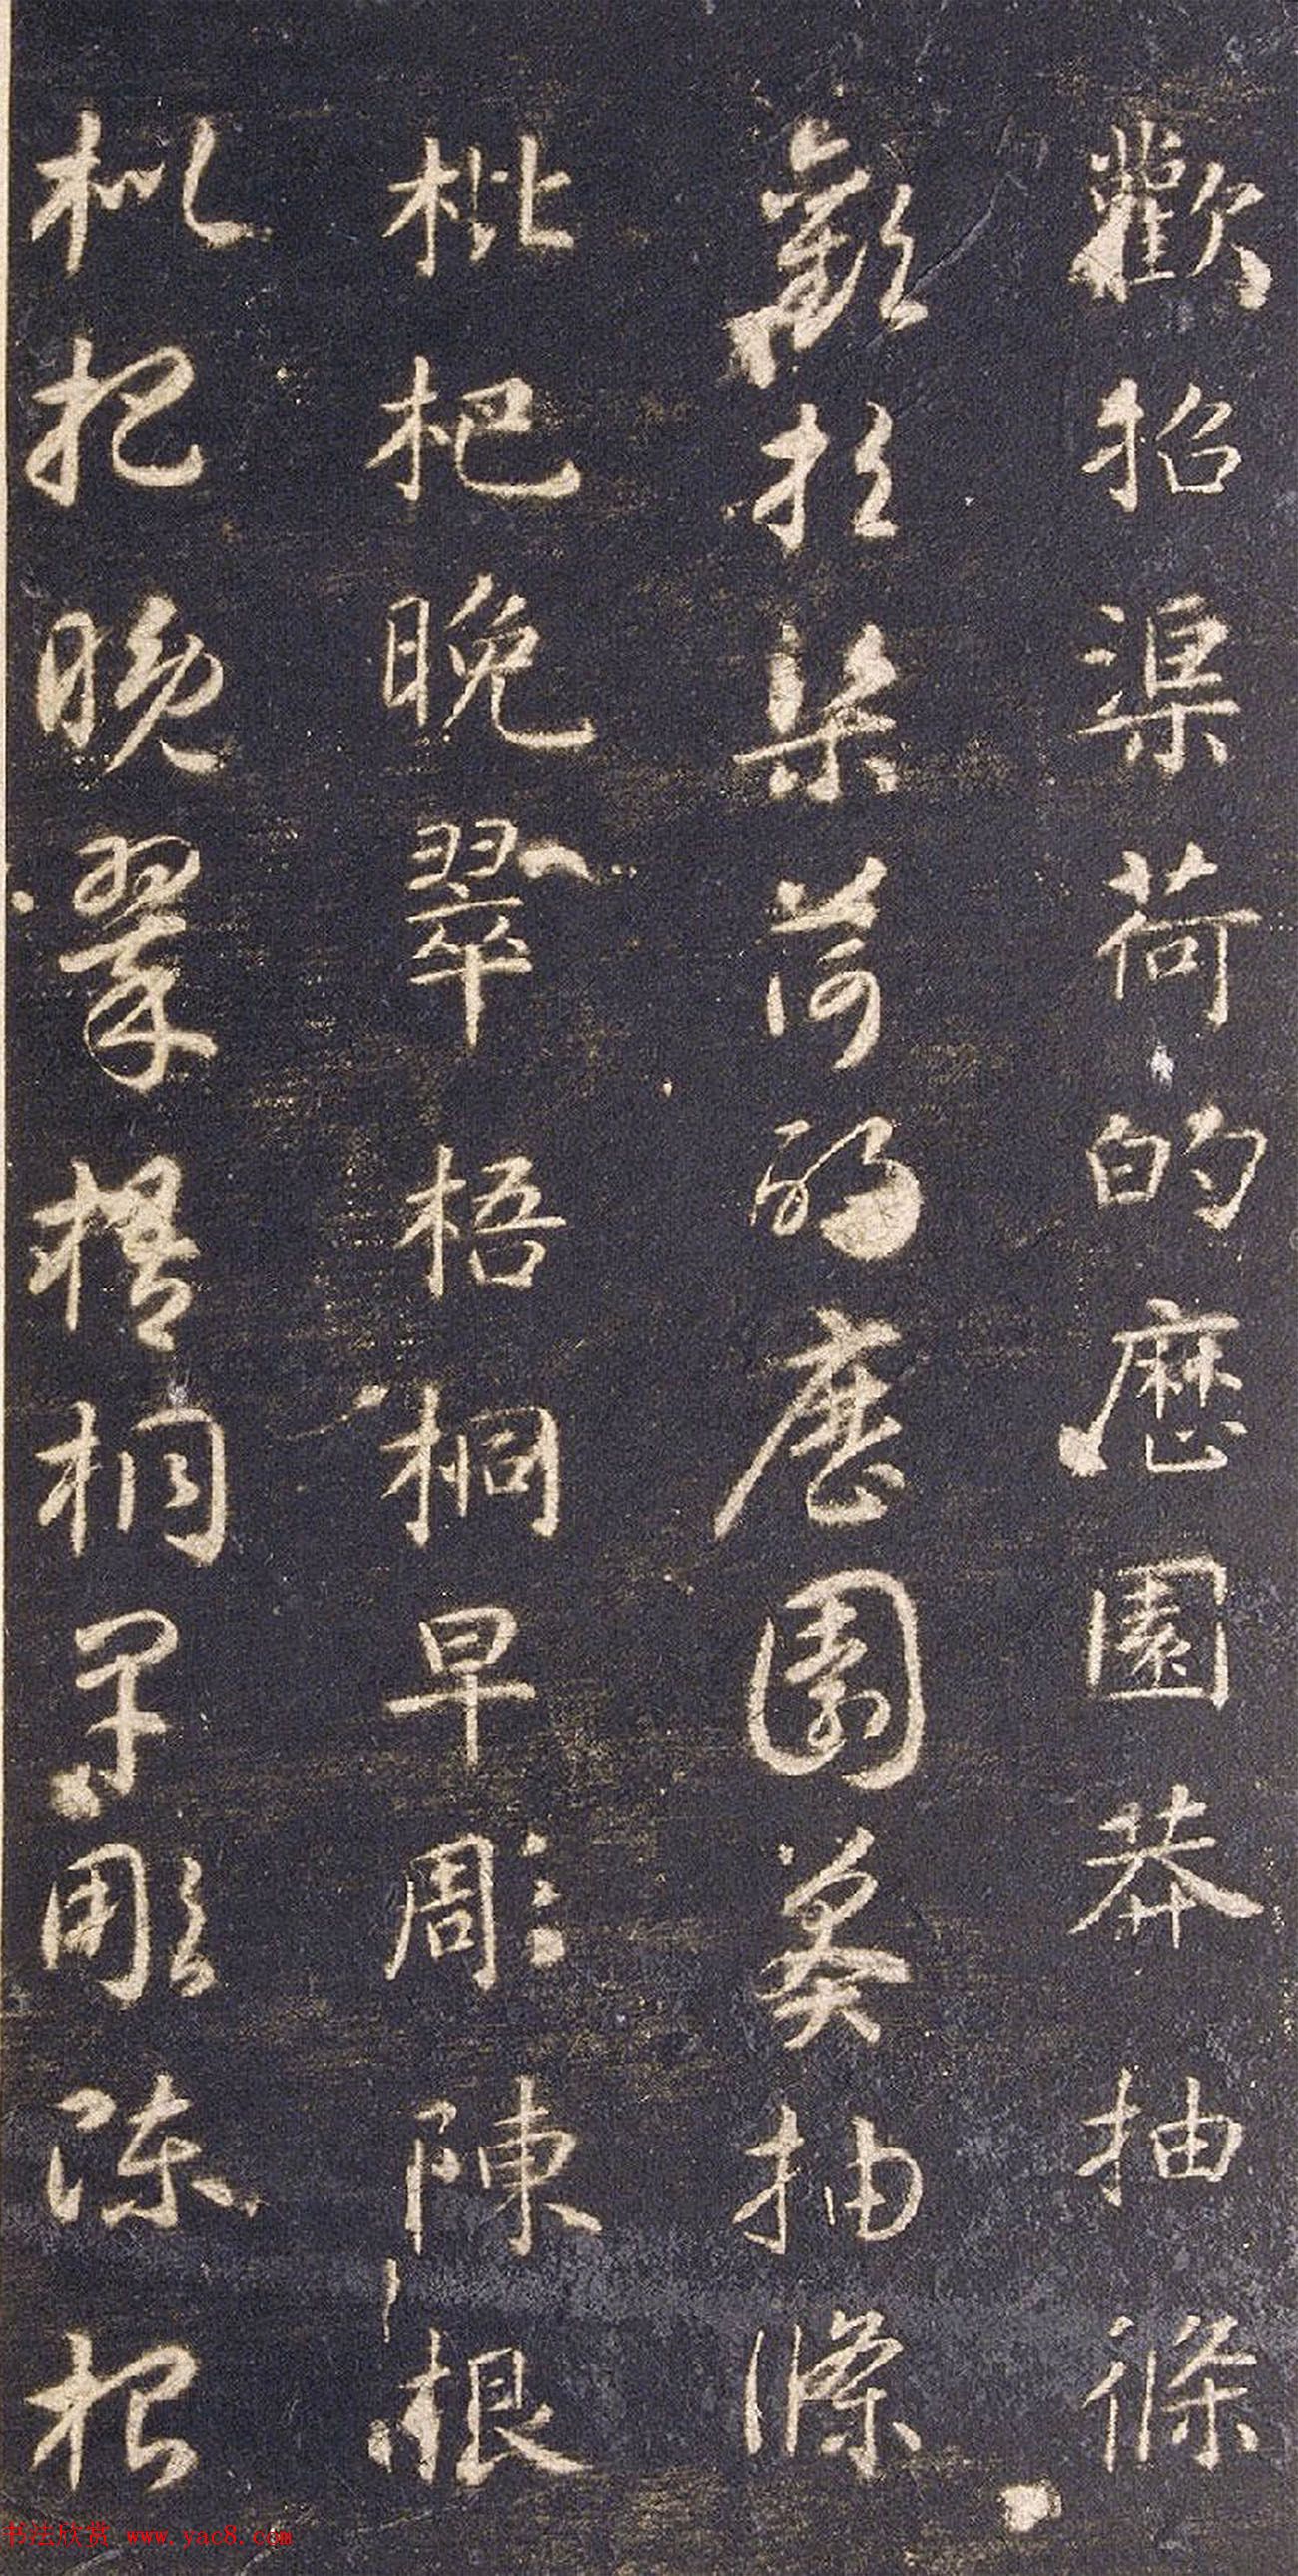 歡招渠荷的歷園莽抽條
歡招渠荷的歷園莽抽條
枇杷晚翠梧桐早周陳根
枇杷晚翠梧桐早彫陳根
书法欣赏 www.yac8.com